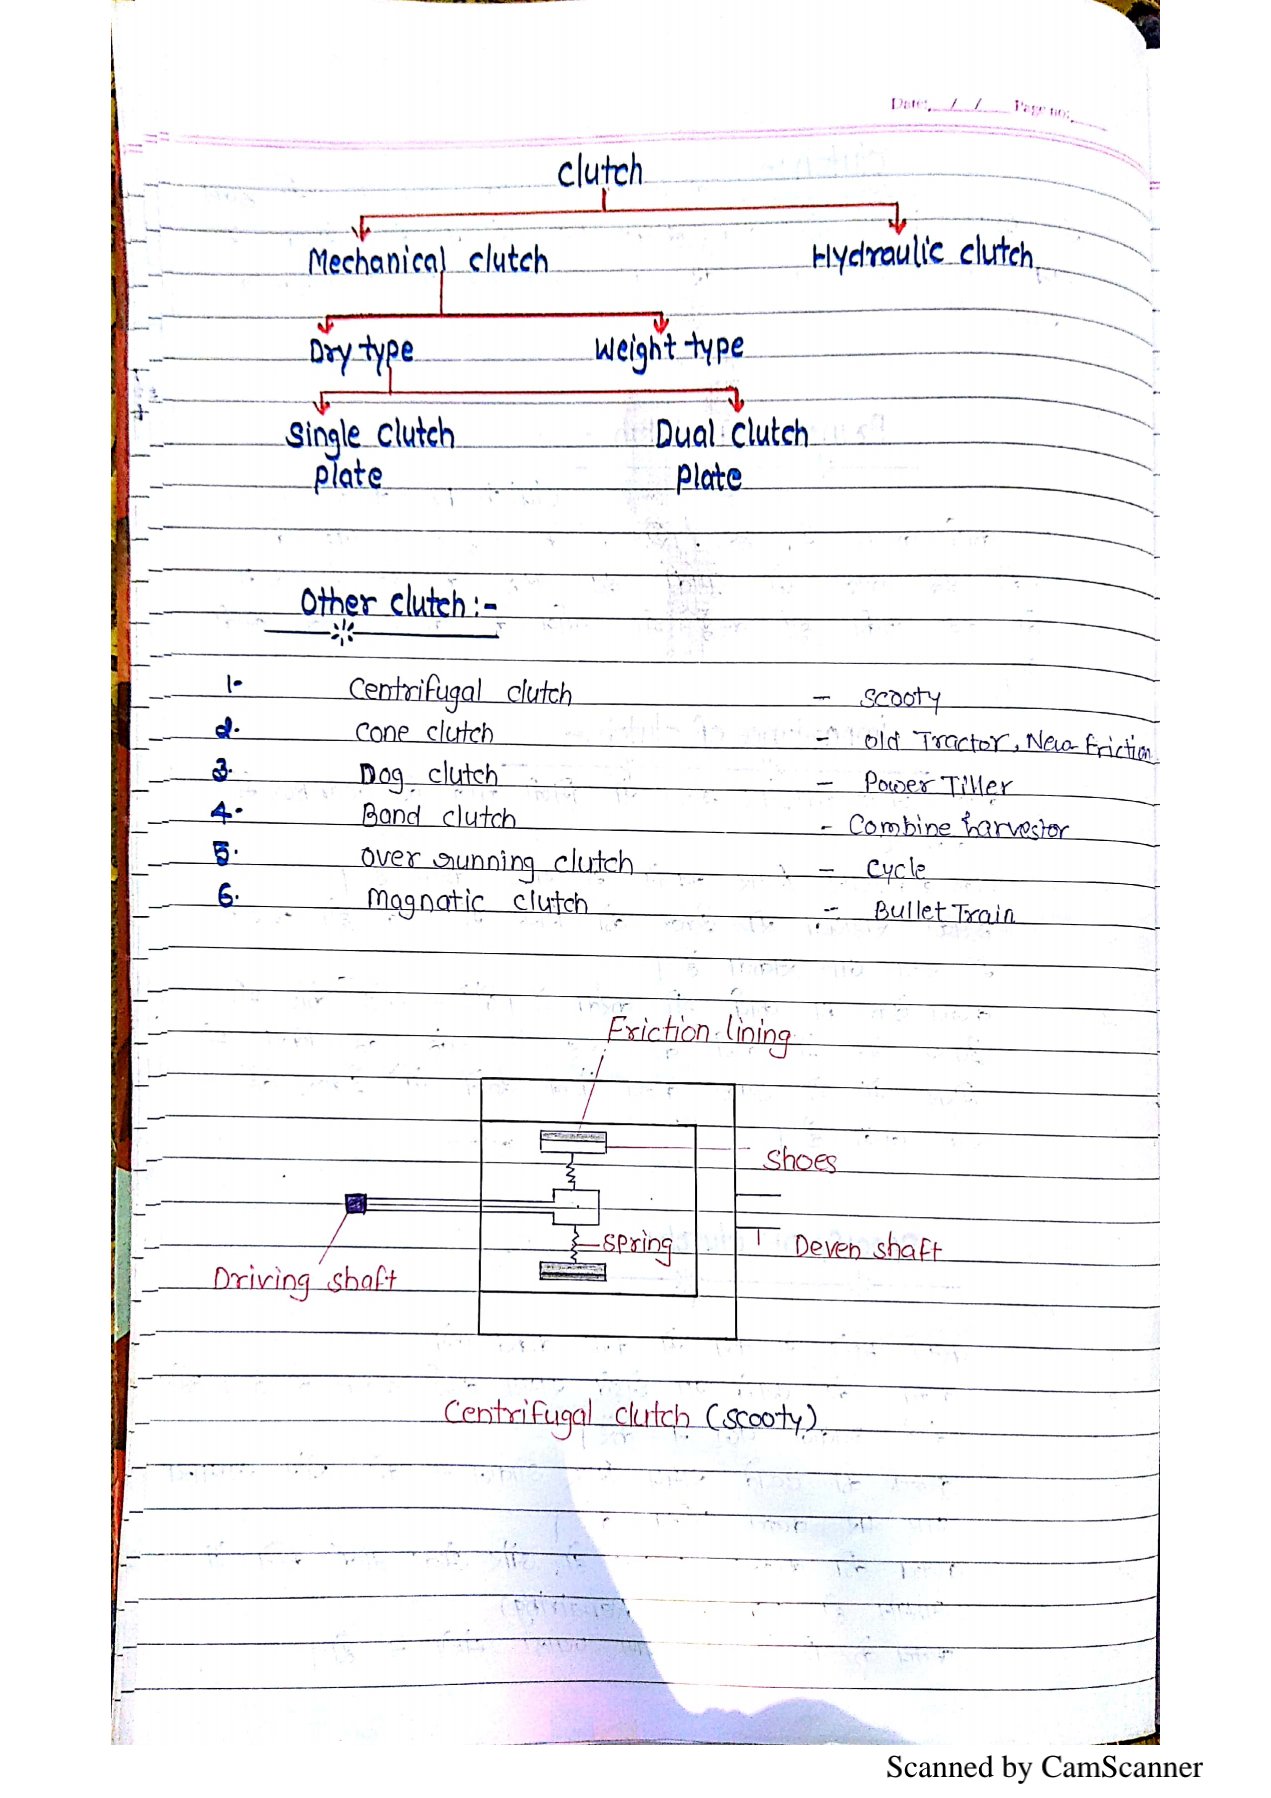 Date: / / Page no:
Clutch
Mechanical clutch Hydraulic clutch
Dry type Weight type
Single clutch Dual clutch
plate plate
Other clutch :-
1. Centrifugal clutch - Scooty
2. Cone clutch - Old Tractor, New Friction
3. Dog clutch - Power Tiller
4. Band clutch - Combine harvestor
5. Over running clutch - Cycle
6. Magnatic clutch - Bullet Train
Friction lining
Shoes
Spring
Deven shaft
Driving shaft
Centrifugal clutch (Scooty).
Scanned by CamScanner